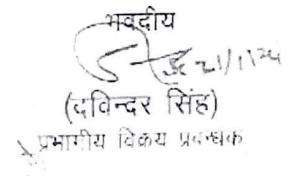 भवदीय
21/1/24
(दविन्दर सिंह)
प्रभागीय विक्रय प्रबन्धक